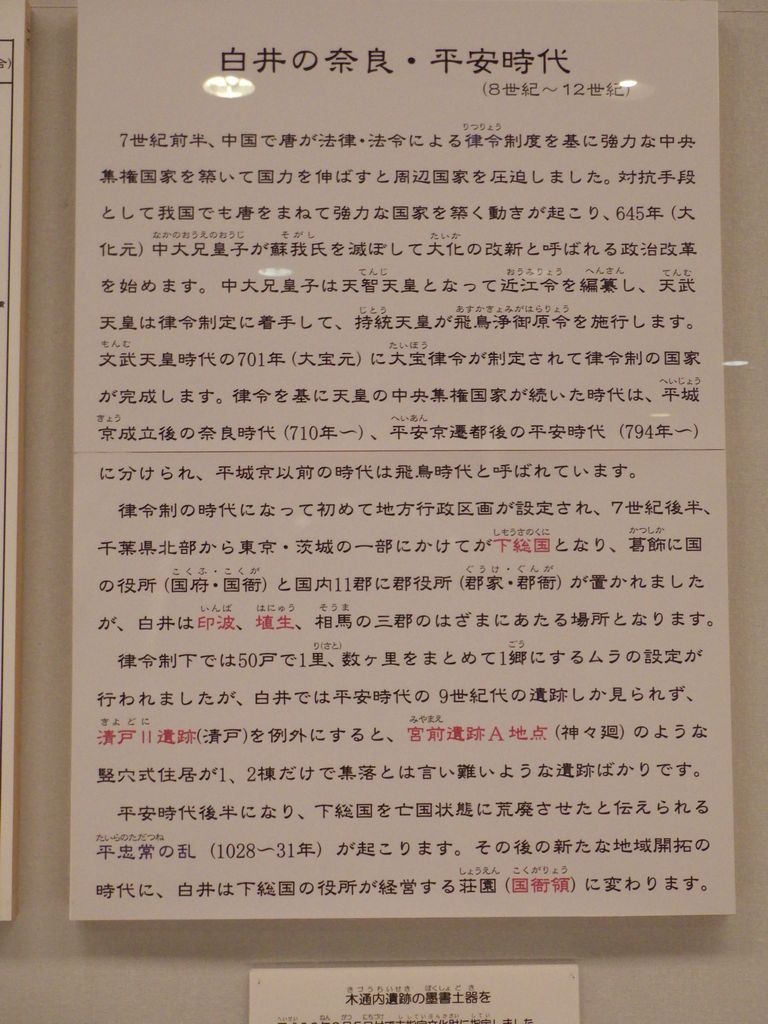 白井の奈良・平安時代
(8世紀～12世紀)
りつりょう
7世紀前半、中国で唐が法律・法令による律令制度を基に強力な中央
集権国家を築いて国力を伸ばすと周辺国家を圧迫しました。対抗手段
として我国でも唐をまねて強力な国家を築く動きが起こり、645年(大
なかのおうえのおうじ そがし たいか
化元)中大兄皇子が蘇我氏を滅ぼして大化の改新と呼ばれる政治改革
てんじ おうみりょう へんさん てんむ
を始めます。中大兄皇子は天智天皇となって近江令を編纂し、天武
じとう あすかきよみがはらりょう
天皇は律令制定に着手して、持統天皇が飛鳥浄御原令を施行します。
もんむ たいほう
文武天皇時代の701年(大宝元)に大宝律令が制定されて律令制の国家
へいじょう
が完成します。律令を基に天皇の中央集権国家が続いた時代は、平城
きょう へいあん
京成立後の奈良時代(710年～)、平安京遷都後の平安時代(794年～)
に分けられ、平城京以前の時代は飛鳥時代と呼ばれています。
律令制の時代になって初めて地方行政区画が設定され、7世紀後半、
しもうさのくに かつしか
千葉県北部から東京・茨城の一部にかけてが下総国となり、葛飾に国
こくふ・こくが ぐうけ・ぐんが
の役所(国府・国衙)と国内11郡に郡役所(郡家・郡衙)が置かれました
いんば はにゅう そうま
が、白井は印波、埴生、相馬の三郡のはざまにあたる場所となります。
り(さと) ごう
律令制下では50戸で1里、数ヶ里をまとめて1郷にするムラの設定が
行われましたが、白井では平安時代の9世紀代の遺跡しか見られず、
きよどに みやまえ
清戸Ⅱ遺跡(清戸)を例外にすると、宮前遺跡A地点(神々廻)のような
竪穴式住居が1、2棟だけで集落とは言い難いような遺跡ばかりです。
平安時代後半になり、下総国を亡国状態に荒廃させたと伝えられる
たいらのただつね
平忠常の乱(1028～31年)が起こります。その後の新たな地域開拓の
しょうえん こくがりょう
時代に、白井は下総国の役所が経営する荘園(国衙領)に変わります。
きづうちいせき ぼくしょどき
木通内遺跡の墨書土器を